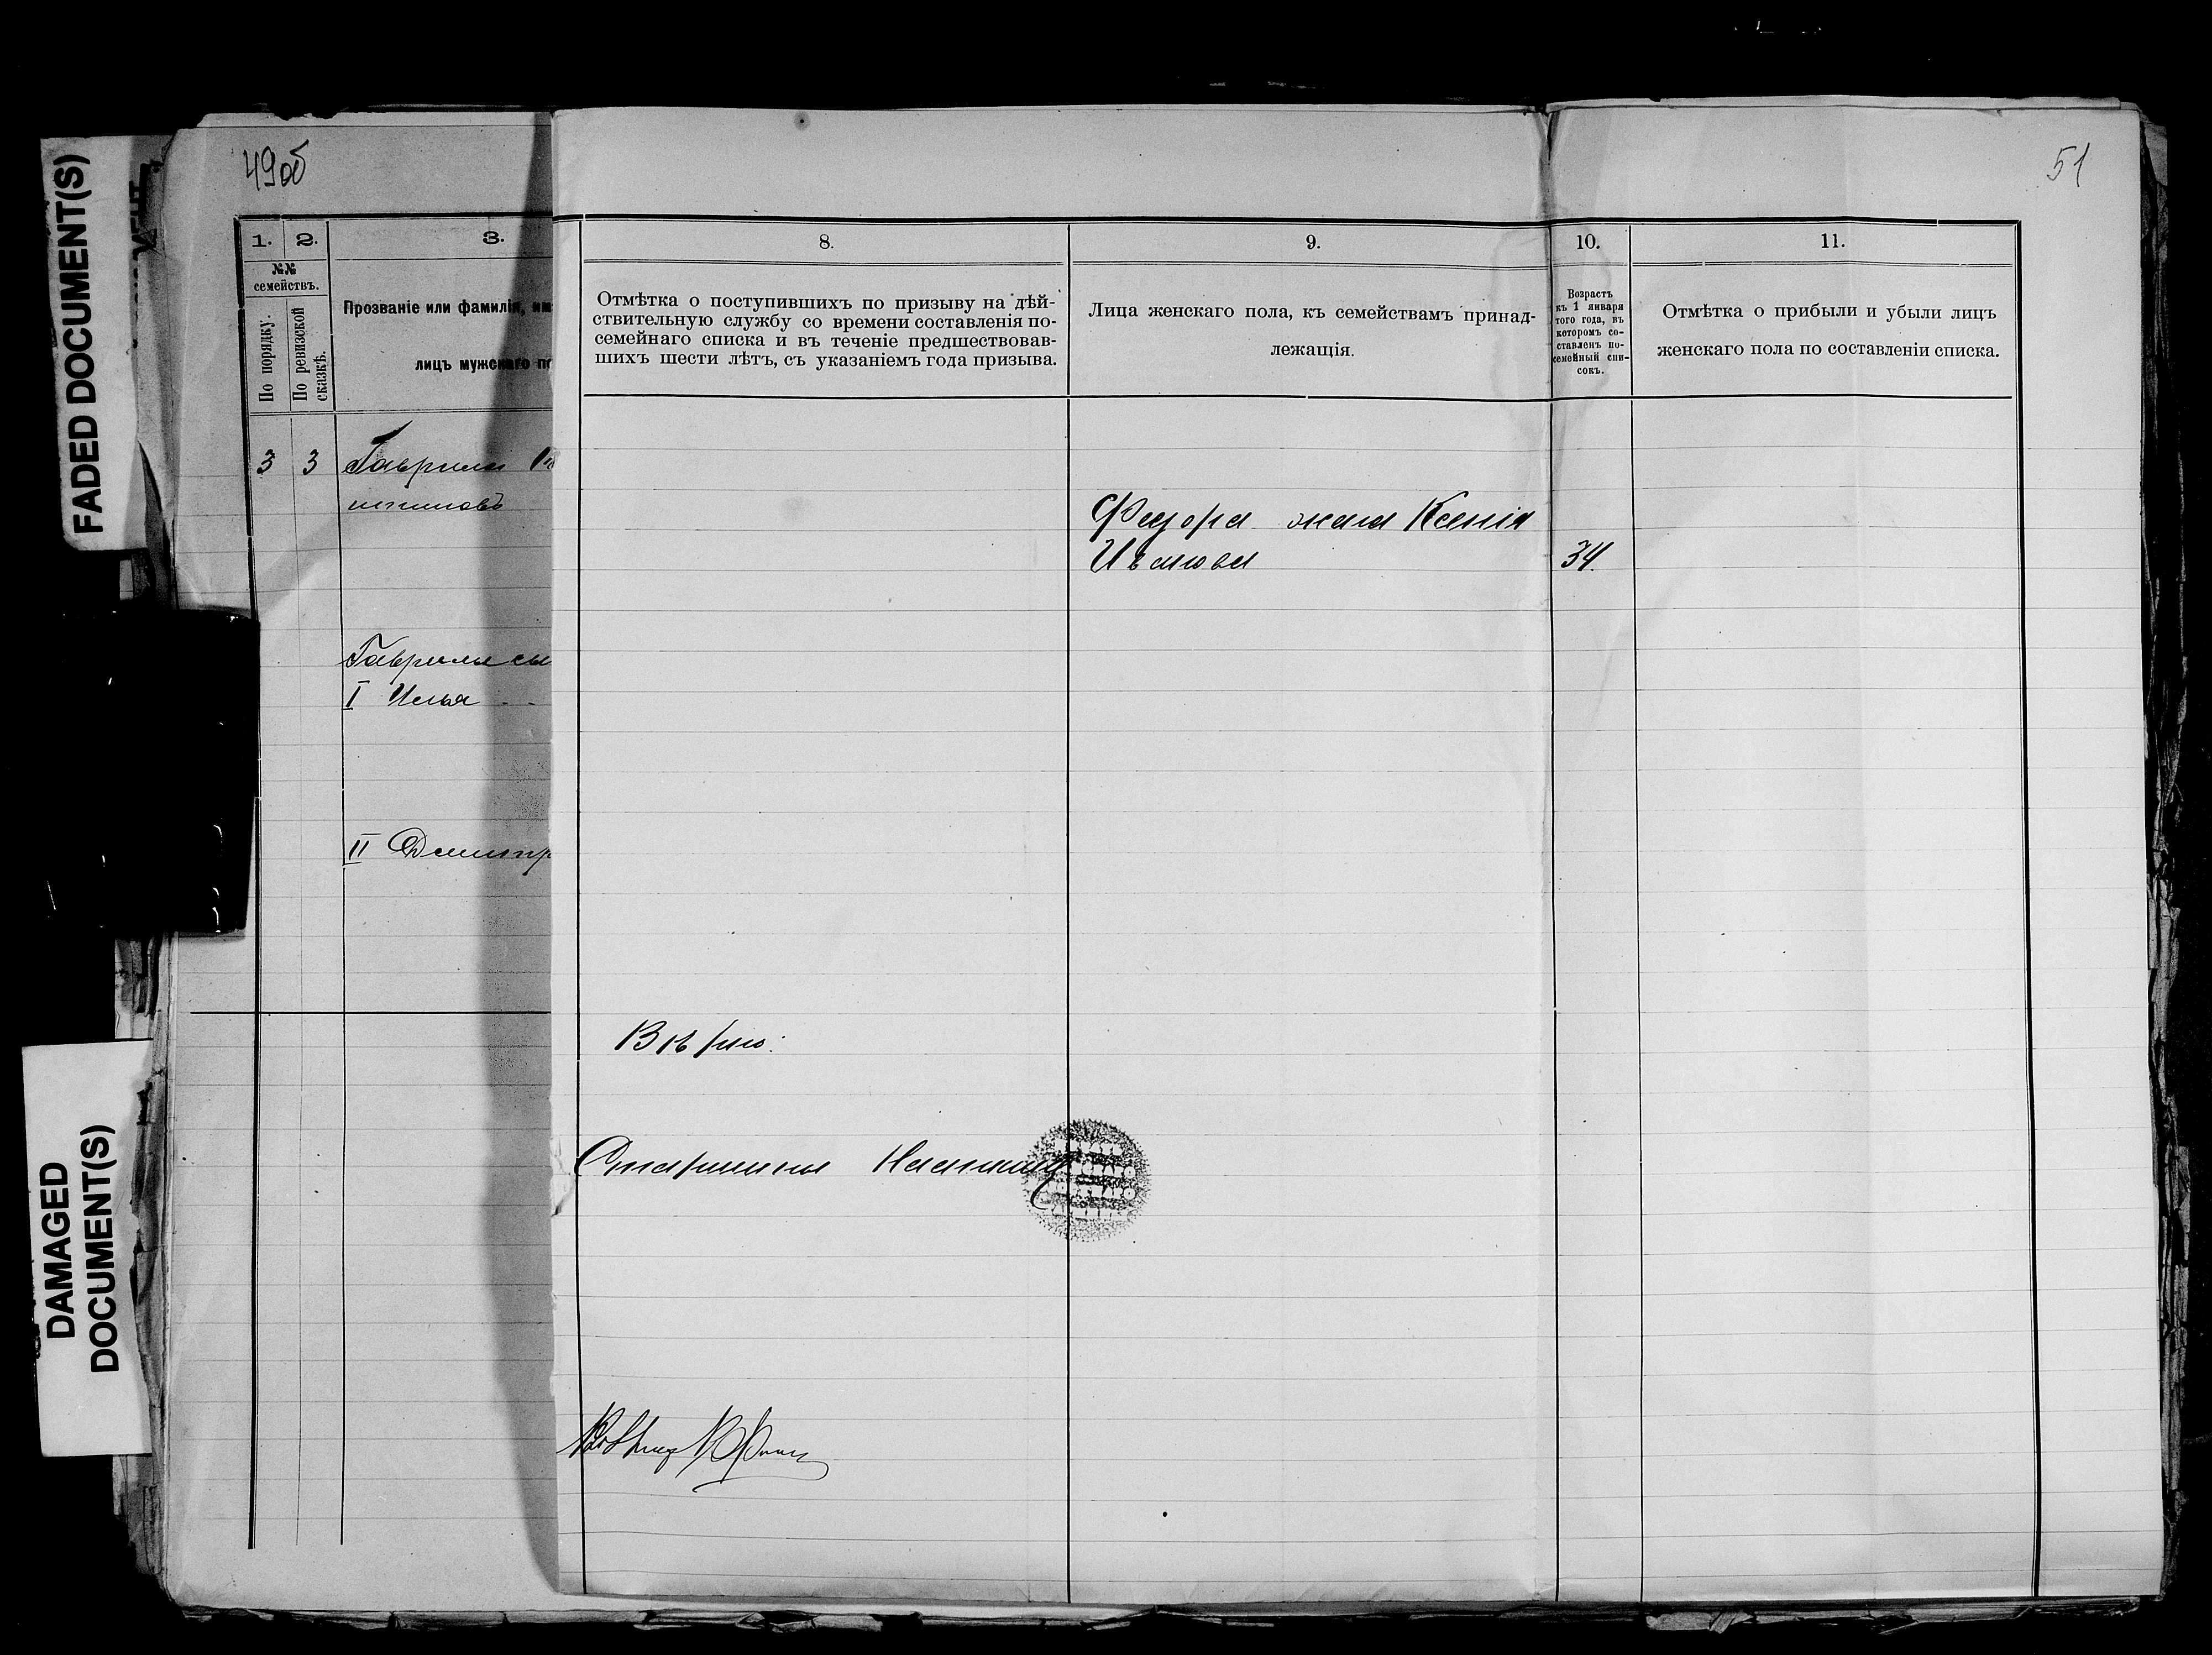 FADED DOCUMENT(S)
DAMAGED
DOCUMENT(S)
49об
1. 2. 3.
№№
семействъ.
По порядку.
По ревизской
сказкѣ.
Прозваніе или фамилія, им
лицъ мужскаго по
3 3 Гаврило
Гаврилы сы
I Илья
II Дмитр
51
8. 9. 10. 11.
Отмѣтка о поступившихъ по призыву на дѣй-
ствительную службу со времени составленія по-
семейнаго списка и въ теченіе предшествовав-
шихъ шести лѣтъ, съ указаніемъ года призыва.
Лица женскаго пола, къ семействамъ принад-
лежащія.
Возрастъ
къ 1 января
того года, въ
которомъ со-
ставленъ по-
семейный спи-
сокъ.
Отмѣтка о прибыли и убыли лицъ
женскаго пола по составленіи списка.
Федора жена Ксенія
34.
Вѣрно:
Старшина